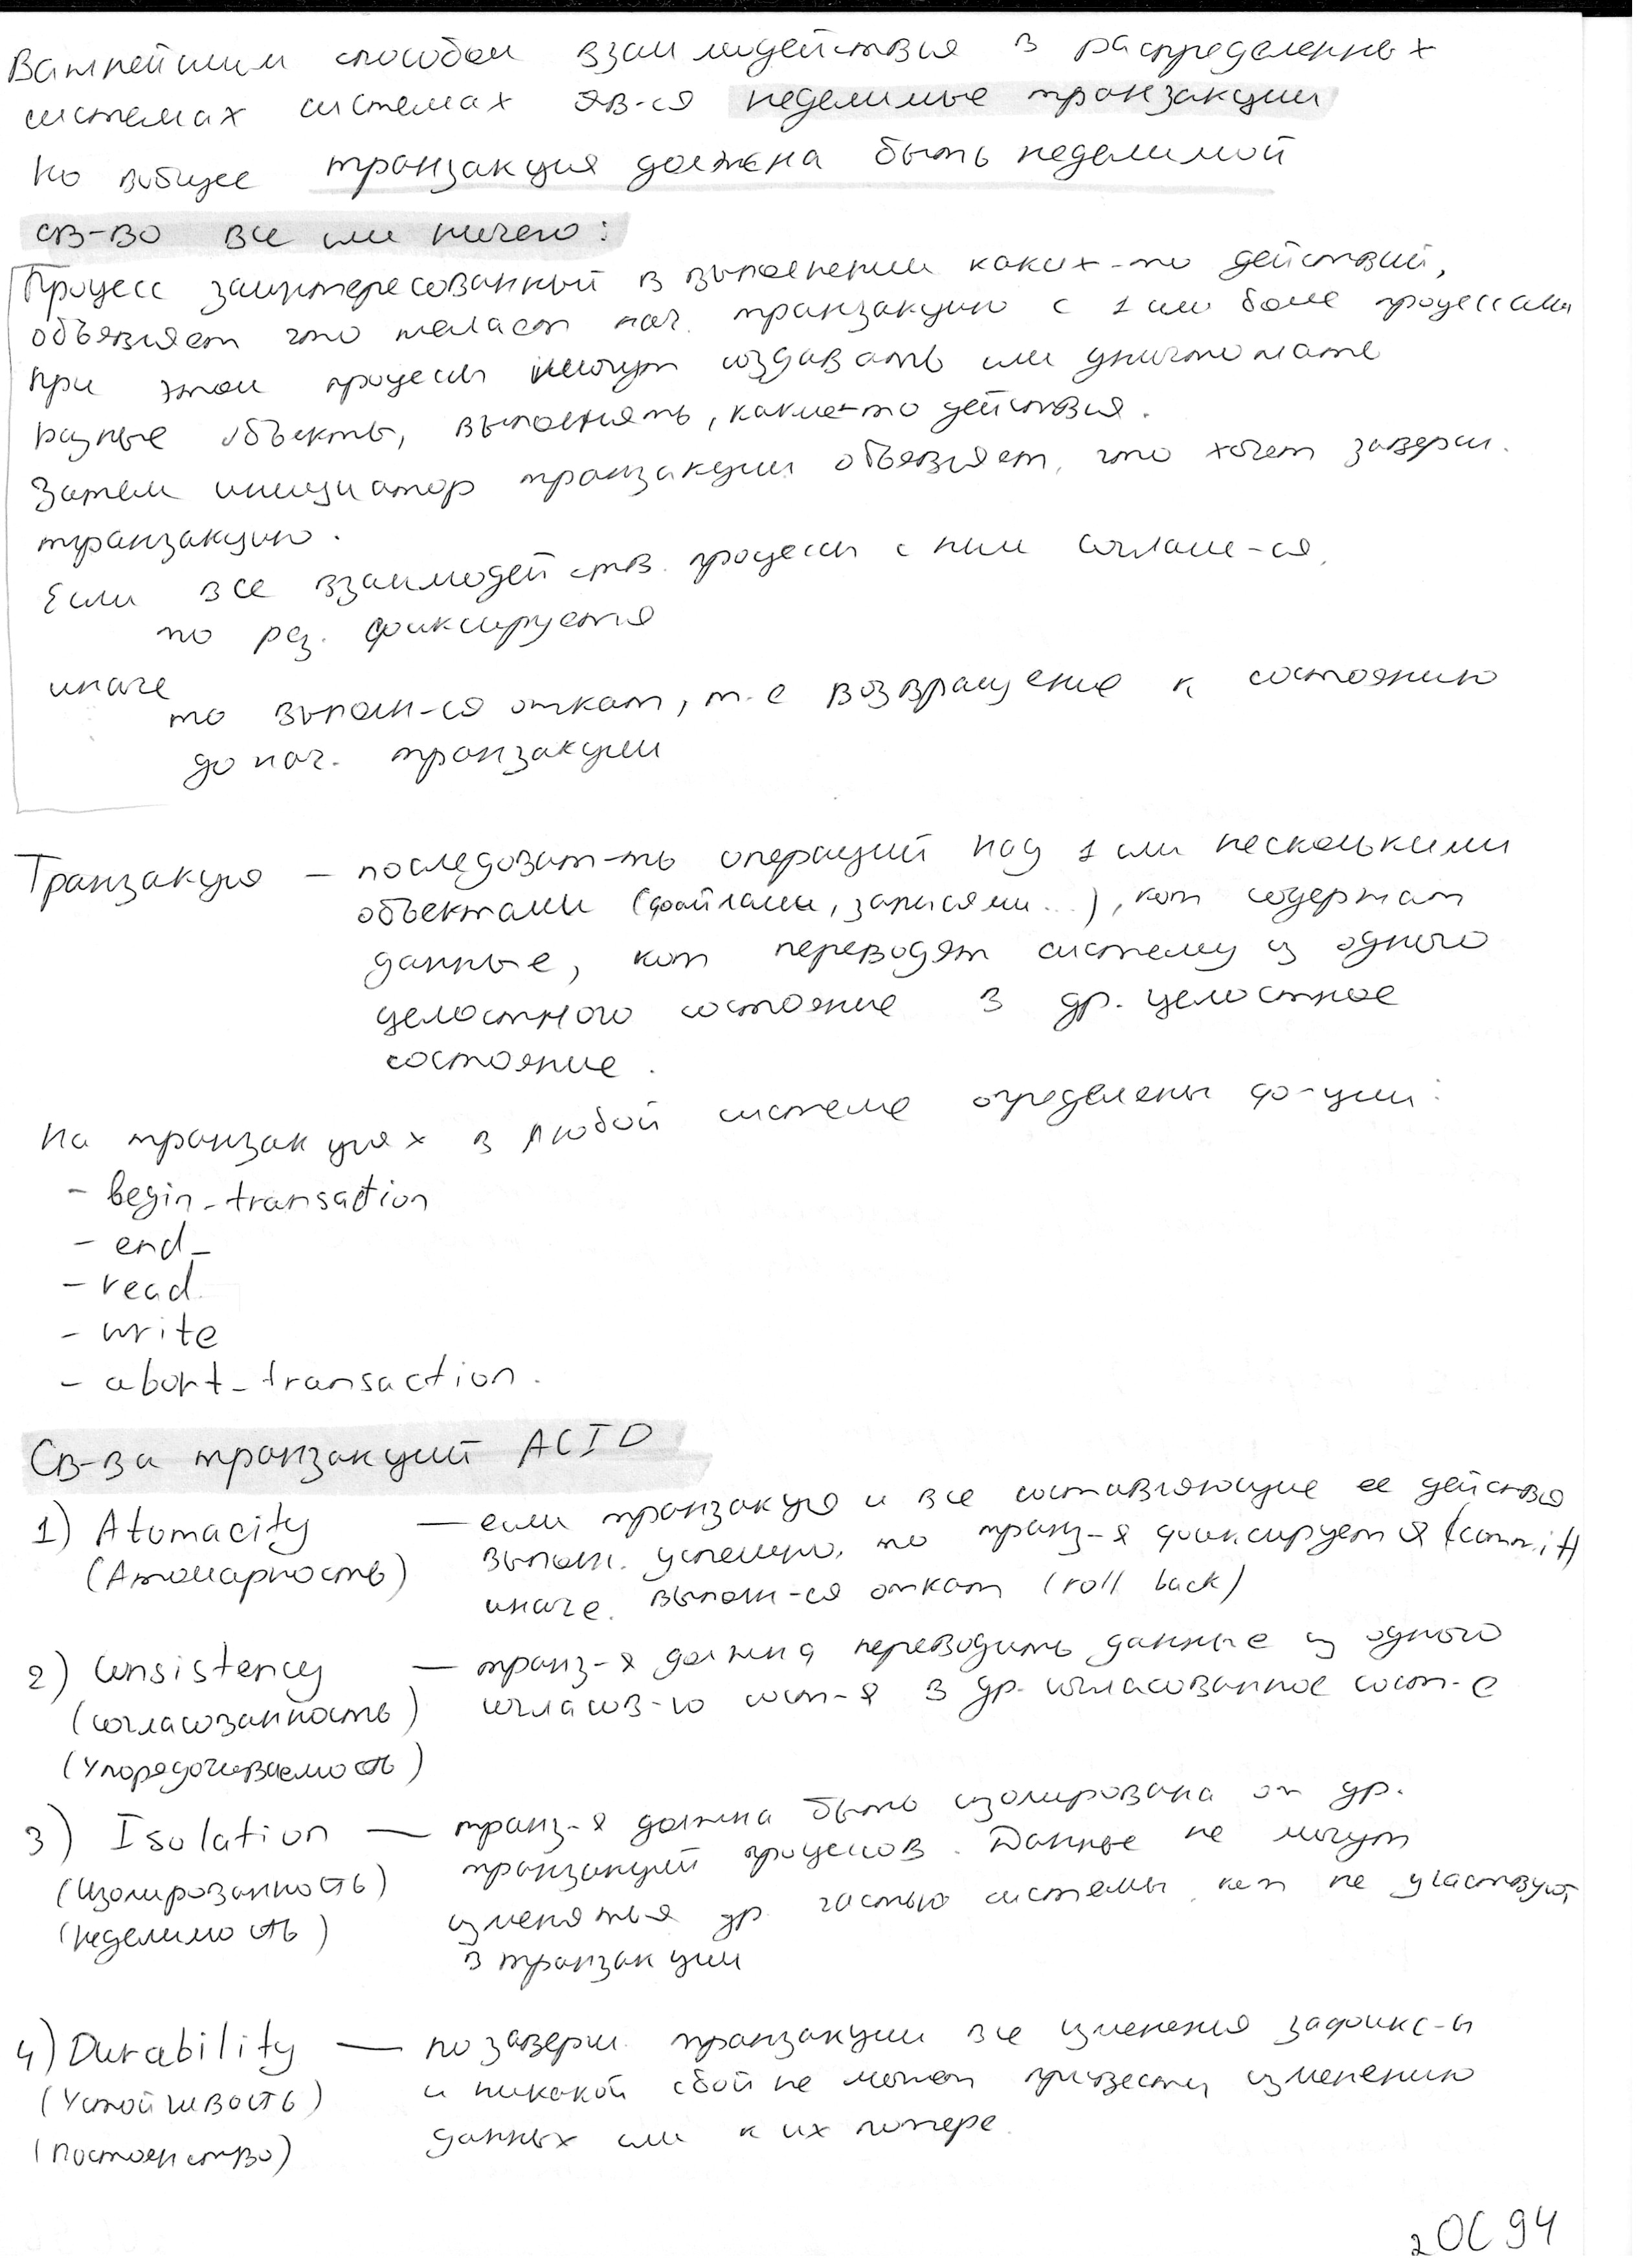 Важнейшим способом взаимодействия в распределенных
системах системах яв-ся неделимые транзакции
Но вообще транзакция должна быть неделимой
св-во все или ничего:
Процесс заинтересованный в выполнении каких-то действий,
объявляет что желает нач. транзакцию с 1 или более процессами
При этом процессы могут создавать или уничтожать
разные объекты, выполнять, какие-то действия.
Затем инициатор транзакции объявляет, что хочет заверш.
транзакцию.
Если все взаимодейств. процессы с ним соглаш-ся,
то рез. фиксируется
иначе
то выполн-ся откат, т.е возвращение к состоянию
до нач. транзакции
Транзакция – последоват-ть операций над 1 или несколькими
объектами (файлами, записями...), кот содержат
данные, кот переводят систему из одного
целостного состояние в др. целостное
состояние.
На транзакциях в любой системе определены ф-ции:
- begin_transaction
- end_
- read
- write
- abort_transaction.
Св-ва транзакций ACID
1) Atomacity — если транзакция и все составляющие ее действия
(Атомарность) выполн. успешно, то транз-я фиксируется (commit)
иначе. выполн-ся откат (roll back)
2) Consistency — транз-я должна переводить данные из одного
(согласованность) согласов-го сост-я в др. согласованное сост-е
(Упорядочиваемость)
3) Isolation — транз-я должна быть изолирована от др.
(Изолированность) транзакций процессов. Данные не могут
(неделимость) изменяться др. частью системы, кот не участвуют
в транзакции
4) Durability — по заверш. транзакции все изменения зафикс-ы
(Устойчивость) и никакой сбой не может привести изменению
(Постоянство) данных или к их потере.
2 ОС 94